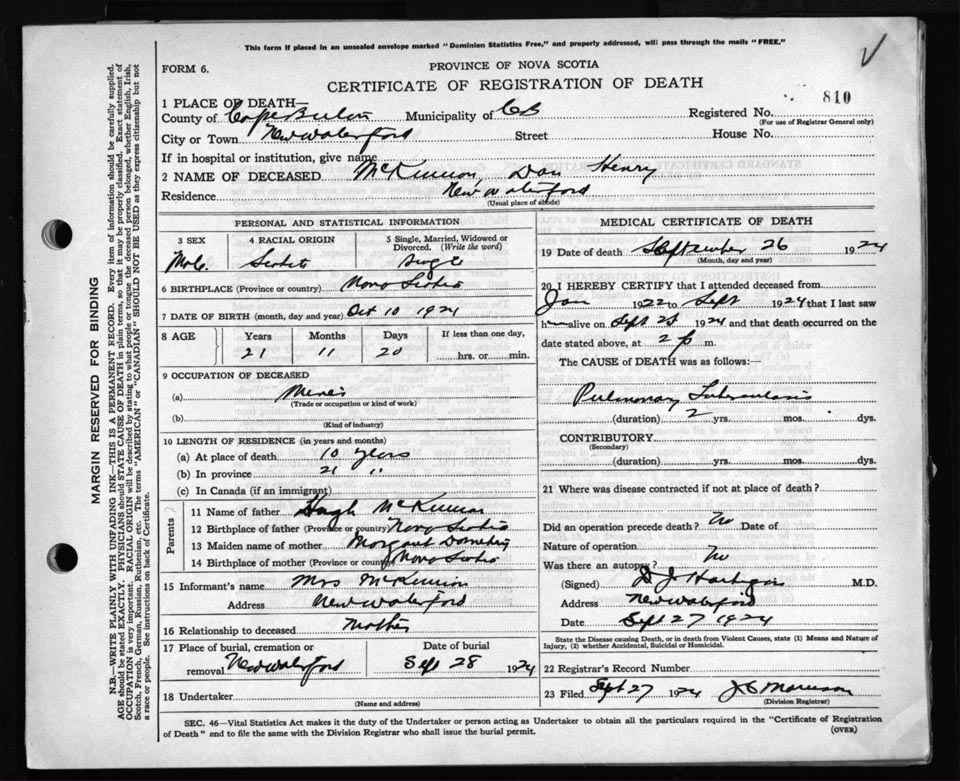 This form if placed in an unsealed envelope marked "Dominion Statistics Free," and properly addressed, will pass through the mails "FREE."
FORM 6.
PROVINCE OF NOVA SCOTIA
CERTIFICATE OF REGISTRATION OF DEATH
810
1 PLACE OF DEATH—
County of Cape Breton Municipality of CB Registered No.
(For use of Registrar General only)
City or Town New Waterford Street House No.
If in hospital or institution, give name
2 NAME OF DECEASED McKinnon, Dan Henry
Residence New Waterford
(Usual place of abode)
PERSONAL AND STATISTICAL INFORMATION
3 SEX 4 RACIAL ORIGIN 5 Single, Married, Widowed or Divorced. (Write the word)
Male Scotch Single
6 BIRTHPLACE (Province or country) Nova Scotia
7 DATE OF BIRTH (month, day and year) Oct 10 1924
8 AGE Years Months Days If less than one day,
21 11 20 hrs. or min.
9 OCCUPATION OF DECEASED
(a) Miner
(Trade or occupation or kind of work)
(b)
(Kind of industry)
10 LENGTH OF RESIDENCE (in years and months)
(a) At place of death 10 years
(b) In province 21 "
(c) In Canada (if an immigrant)
Parents
11 Name of father Hugh McKinnon
12 Birthplace of father (Province or country) Nova Scotia
13 Maiden name of mother Margaret
14 Birthplace of mother (Province or country) Nova Scotia
15 Informant's name Mrs McKinnon
Address New Waterford
16 Relationship to deceased Mother
17 Place of burial, cremation or Date of burial
removal New Waterford Sept 28 1924
18 Undertaker
(Name and address)
MEDICAL CERTIFICATE OF DEATH
19 Date of death September 26 1924
(Month, day and year)
20 I HEREBY CERTIFY that I attended deceased from
Jan 1922 to Sept 1924 that I last saw
h alive on Sept 25 1924 and that death occurred on the
date stated above, at 2 p m.
The CAUSE of DEATH was as follows:—
Pulmonary Tuberculosis
(duration) 2 yrs. mos. dys.
CONTRIBUTORY
(Secondary)
(duration) yrs. mos. dys.
21 Where was disease contracted if not at place of death?
Did an operation precede death? No Date of
Nature of operation
Was there an autopsy? No
(Signed) D J Hartigan M.D.
Address New Waterford
Date Sept 27 1924
State the Disease causing Death, or in death from Violent Causes, state (1) Means and Nature of
Injury, (2) whether Accidental, Suicidal or Homicidal.
22 Registrar's Record Number
23 Filed Sept 27 1924 J C Morrison
(Division Registrar)
SEC. 46—Vital Statistics Act makes it the duty of the Undertaker or person acting as Undertaker to obtain all the particulars required in the "Certificate of Registration
of Death" and to file the same with the Division Registrar who shall issue the burial permit.
(OVER)
MARGIN RESERVED FOR BINDING
N.B.—WRITE PLAINLY WITH UNFADING INK—THIS IS A PERMANENT RECORD. Every item of information should be carefully supplied.
AGE should be stated EXACTLY. PHYSICIANS should STATE CAUSE OF DEATH in plain terms, so that it may be properly classified. Exact statement of
OCCUPATION is very important. RACIAL ORIGIN will be described by stating to what people or tongue the deceased person belonged, whether English, Irish,
Scotch, French, German, Russian, Ruthenian, etc. The terms "AMERICAN" or "CANADIAN" SHOULD NOT BE USED as they express citizenship but not
a race or people. See instructions on back of Certificate.